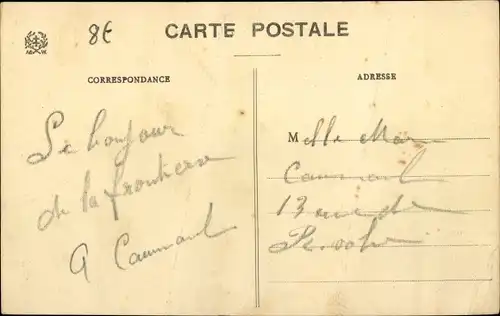 8€
CARTE POSTALE
CORRESPONDANCE
ADRESSE
Le bonjour
de la frontiere
A Caumont
Melle Mar
Caumont
13 rue de